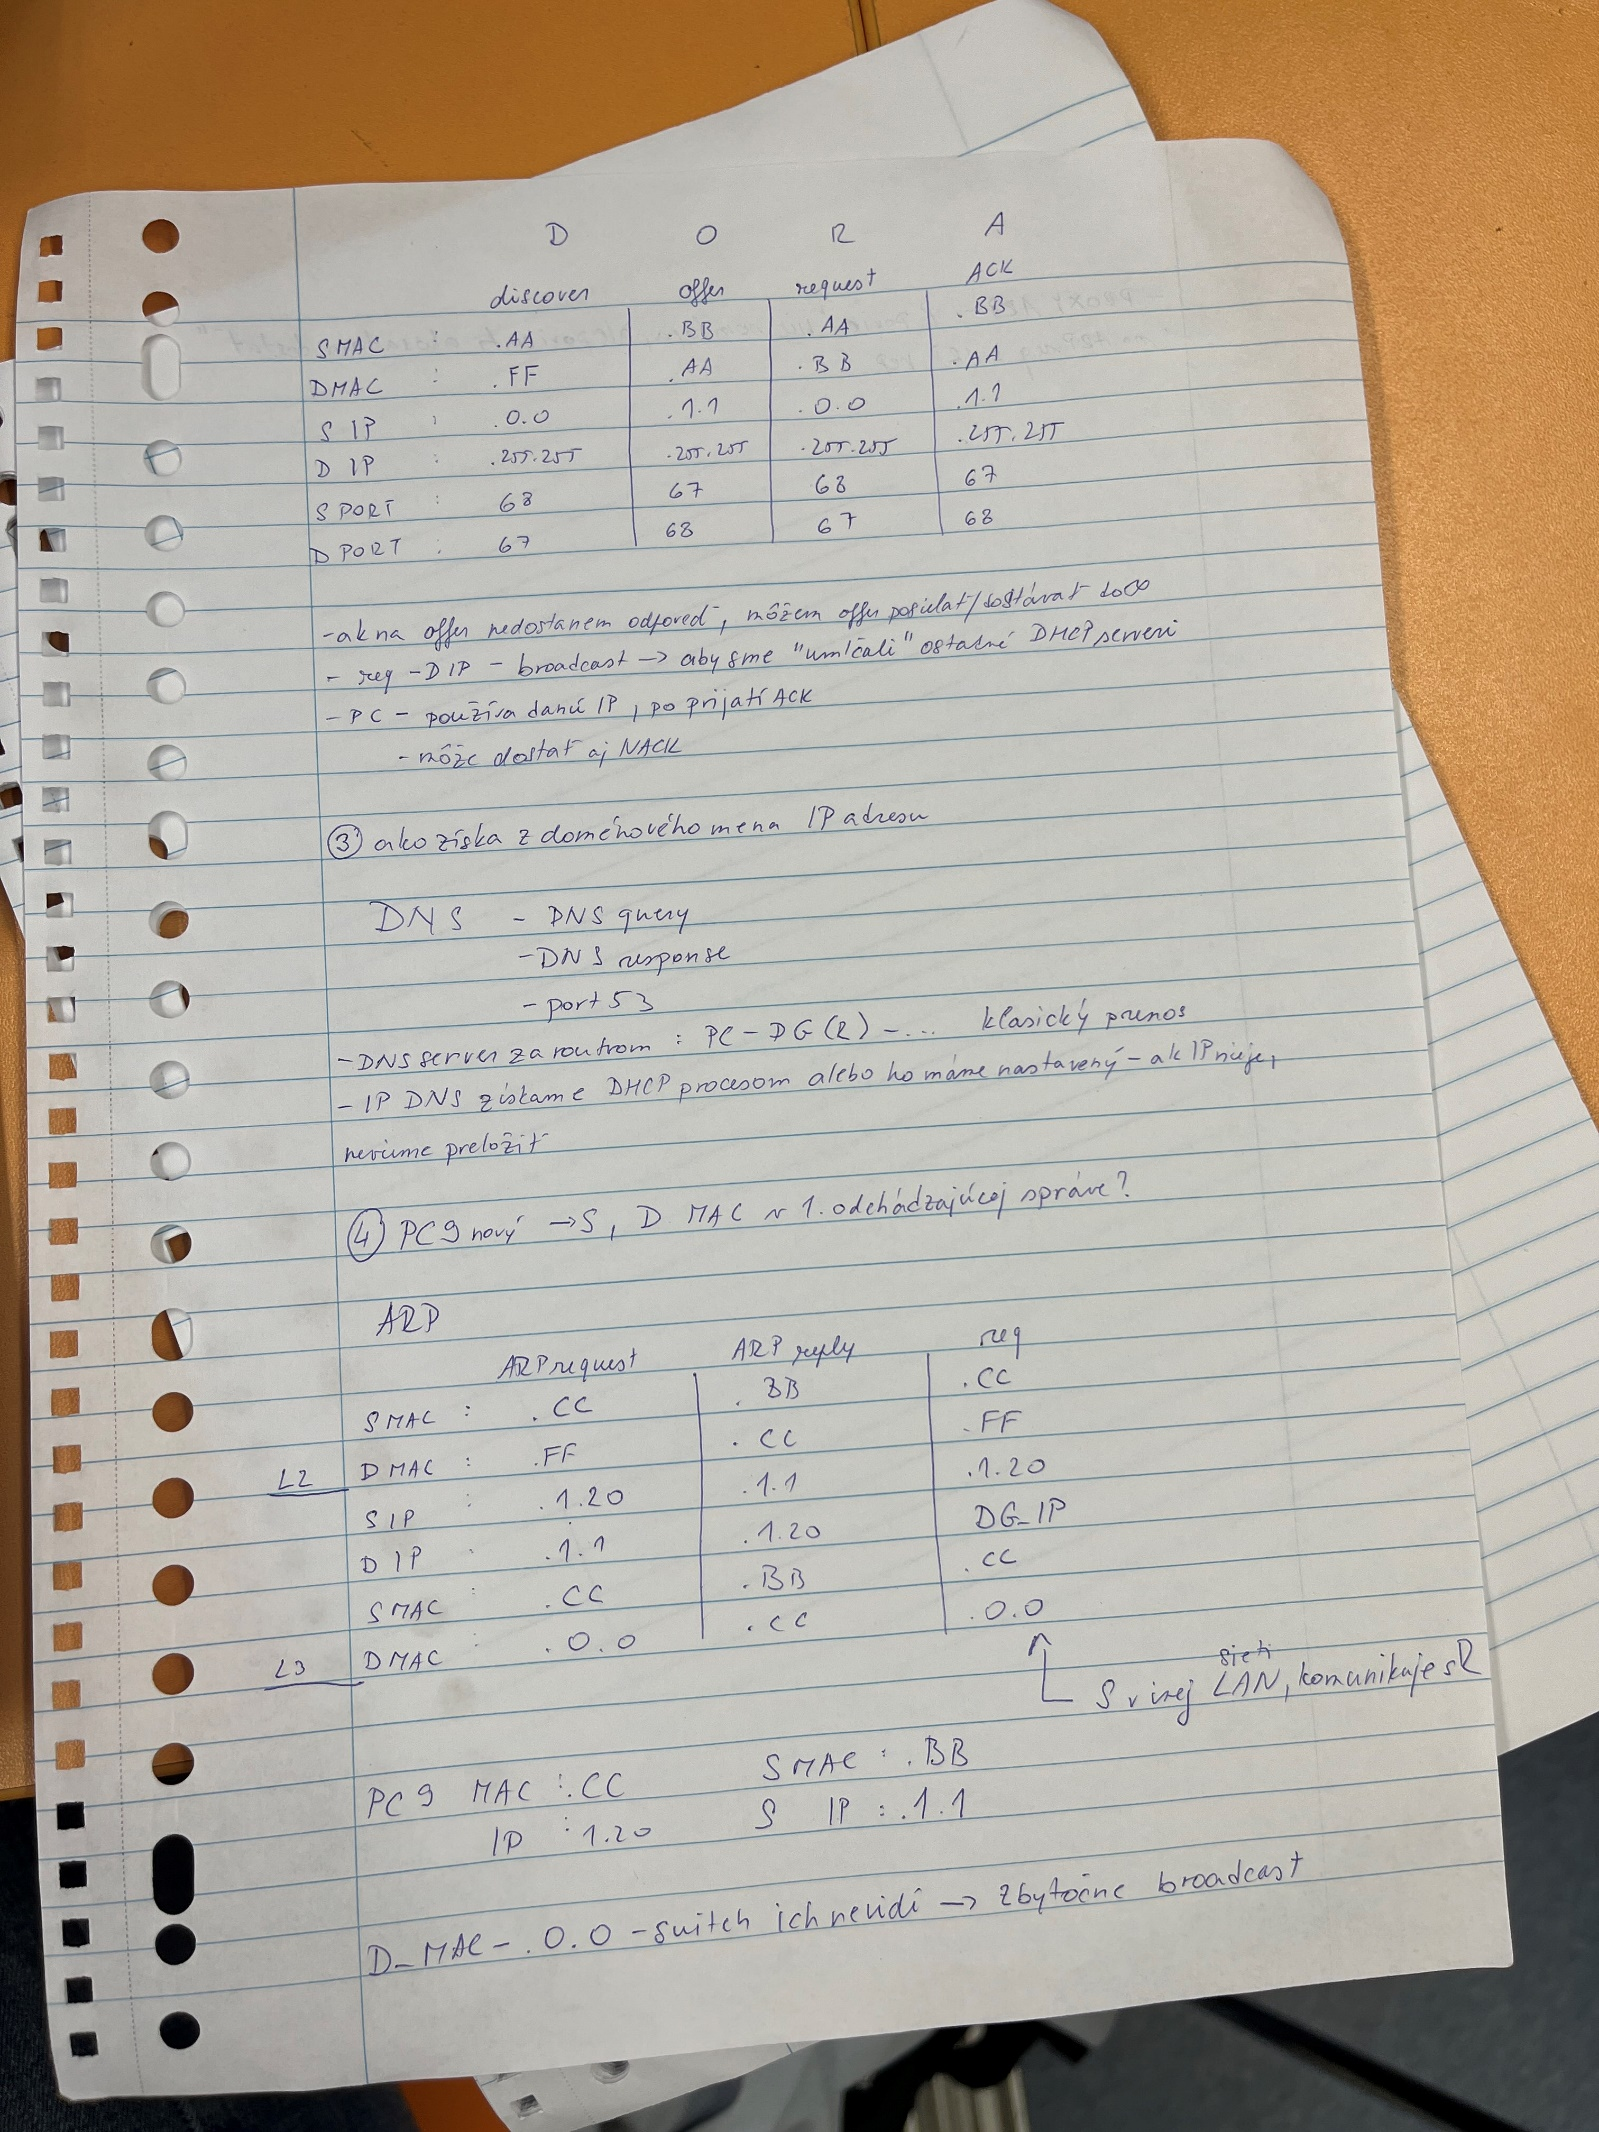 D O R A
discover offer request ACK
SMAC : .AA .BB .AA .BB
DMAC : .FF .AA .BB .AA
S IP : .0.0 .1.1 .0.0 .1.1
D IP : .255.255 .255.255 .255.255 .255.255
SPORT : 68 67 68 67
DPORT : 67 68 67 68
- ak na offer nedostanem odpoveď, môžem offer posielať/dostávať do ∞
- req - DIP - broadcast → aby sme "umlčali" ostatné DHCP serveri
- PC - používa danú IP, po prijatí ACK
- môže dostať aj NACK
③ ako získa z doménového mena IP adresu
DNS - DNS query
- DNS response
- port 53
- DNS server za routrom : PC - DG (R) - ... klasický prenos
- IP DNS získame DHCP procesom alebo ho máme nastavený - ak IP nieje,
nevieme preložiť
④ PC9 nový → S, D MAC v 1. odchádzajúcej správe?
ARP
ARP request ARP reply req
SMAC : .CC .BB .CC
L2 DMAC : .FF .CC .FF
SIP : .1.20 .1.1 .1.20
DIP : .1.1 .1.20 DG_IP
SMAC : .CC .BB .CC
L3 DMAC : .0.0 .CC .0.0
sieti
S v inej LAN, komunikuje s R
PC9 MAC : .CC SMAC : .BB
IP : 1.20 S IP : .1.1
D_MAC - .0.0 - switch ich nevidí → zbytočne broadcast